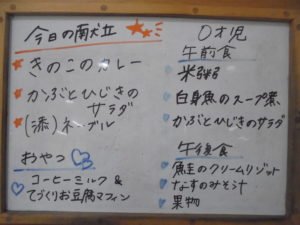 今日の献立
きのこのカレー
かぶとひじきの
サラダ
(添)ネーブル
おやつ
コーヒーミルク &
てづくりお豆腐マフィン
0才児
午前食
米粥
白身魚のスープ煮
かぶとひじきのサラダ
午後食
鮭のクリームリゾット
なすのみそ汁
果物